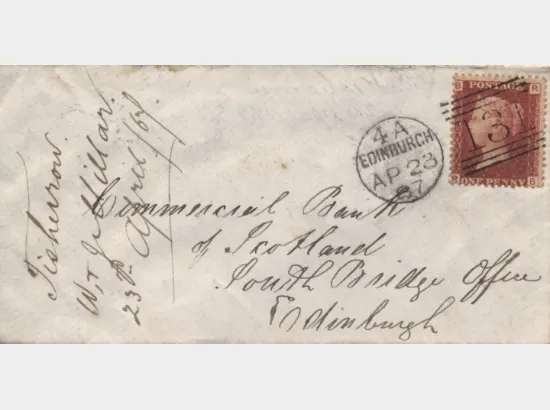 Fisherrow
W & J Millar
23rd April /67
Commercial Bank
of Scotland
South Bridge Office
Edinburgh
4 A
EDINBURGH
AP 23
67
B R
POSTAGE
131
R B
ONE PENNY